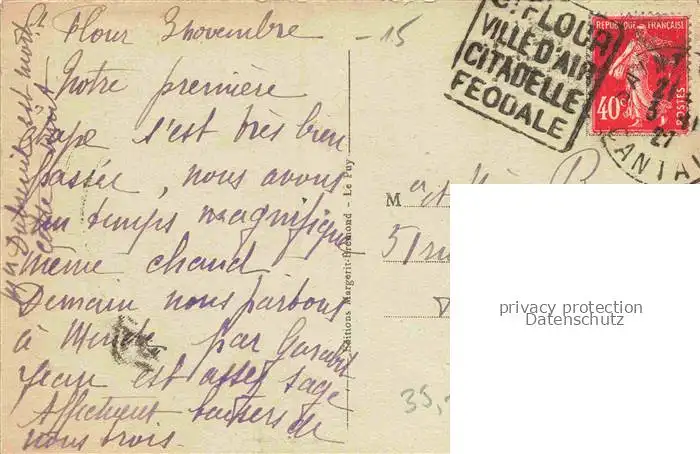 St Flour 3 novembre
- 15
Notre première
étape s'est très bien
passée, nous avons
un temps magnifique
même chaud
Demain nous partons
à Mende par Garabit
Jean est assez sage
Affectueux baisers de
nous trois.
est mort
cette
Editions Margerit-Brémond - Le Puy
ST FLOUR
VILLE D'AIR
CITADELLE
FEODALE
REPUBLIQUE FRANÇAISE
40c
POSTES
21
27
CANTAL
M
51 rue
35,
privacy protection
Datenschutz